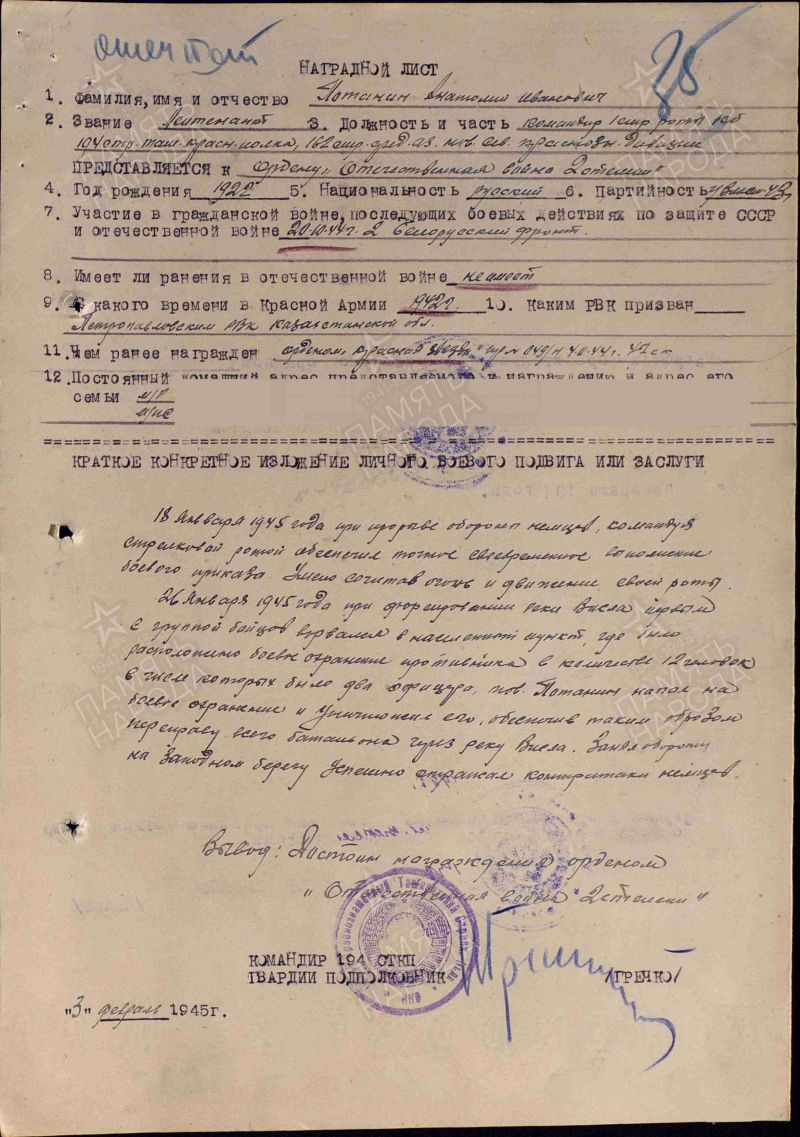 отеч II ст
35
НАГРАДНОЙ ЛИСТ
1. Фамилия, имя и отчество Потанин Анатолий Иванович
2. Звание Лейтенант 3. Должность и часть командир 1 стр. роты 1 сб
194 стр. там. красн. полка, 162 стр. сред. аз. нов. сев. краснозн. дивизии
ПРЕДСТАВЛЯЕТСЯ к Ордену "Отечественная война 2 степени"
4. Год рождения 1922 г 5. Национальность русский 6. Партийность
7. Участие в гражданской войне, последующих боевых действиях по защите СССР
и отечественной войне 20.10.44 г. 2 Белорусский фронт.
8. Имеет ли ранения в отечественной войне не имеет
9. С какого времени в Красной Армии 1942 г. 10. Каким РВК призван
Петропавловским РВК Казахстанской обл.
11. Чем ранее награжден орденом "Красной Звезды" 47 ск
12. Постоянный домашний адрес представляемого к награждению и адрес его
семьи
===
КРАТКОЕ КОНКРЕТНОЕ ИЗЛОЖЕНИЕ ЛИЧНОГО БОЕВОГО ПОДВИГА ИЛИ ЗАСЛУГИ
18 Января 1945 года при прорыве обороны немцев, командуя
стрелковой ротой обеспечил точное своевременное выполнение
боевого приказа. Умело сочитав огонь и движение своей роты.
26 Января 1945 года при форсировании реки Висла первым
с группой бойцов ворвался в населенный пункт, где было
расположено боевое охранение противника в количестве 12 человек
в числе которых было два офицера, тов. Потанин напал на
боевое охранение и уничтожил его, обеспечив таким образом
переправу всего батальона через реку Висла. Заняв оборону
на Западном берегу Успешно отражал контратаки немцев.
Вывод: Достоин награждения орденом
"Отечественная война 2 степени"
КОМАНДИР 194 СТКП
ГВАРДИИ ПОДПОЛКОВНИК /ГРЕЧКО/
"3" февраля 1945г.
ПАМЯТЬ НАРОДА